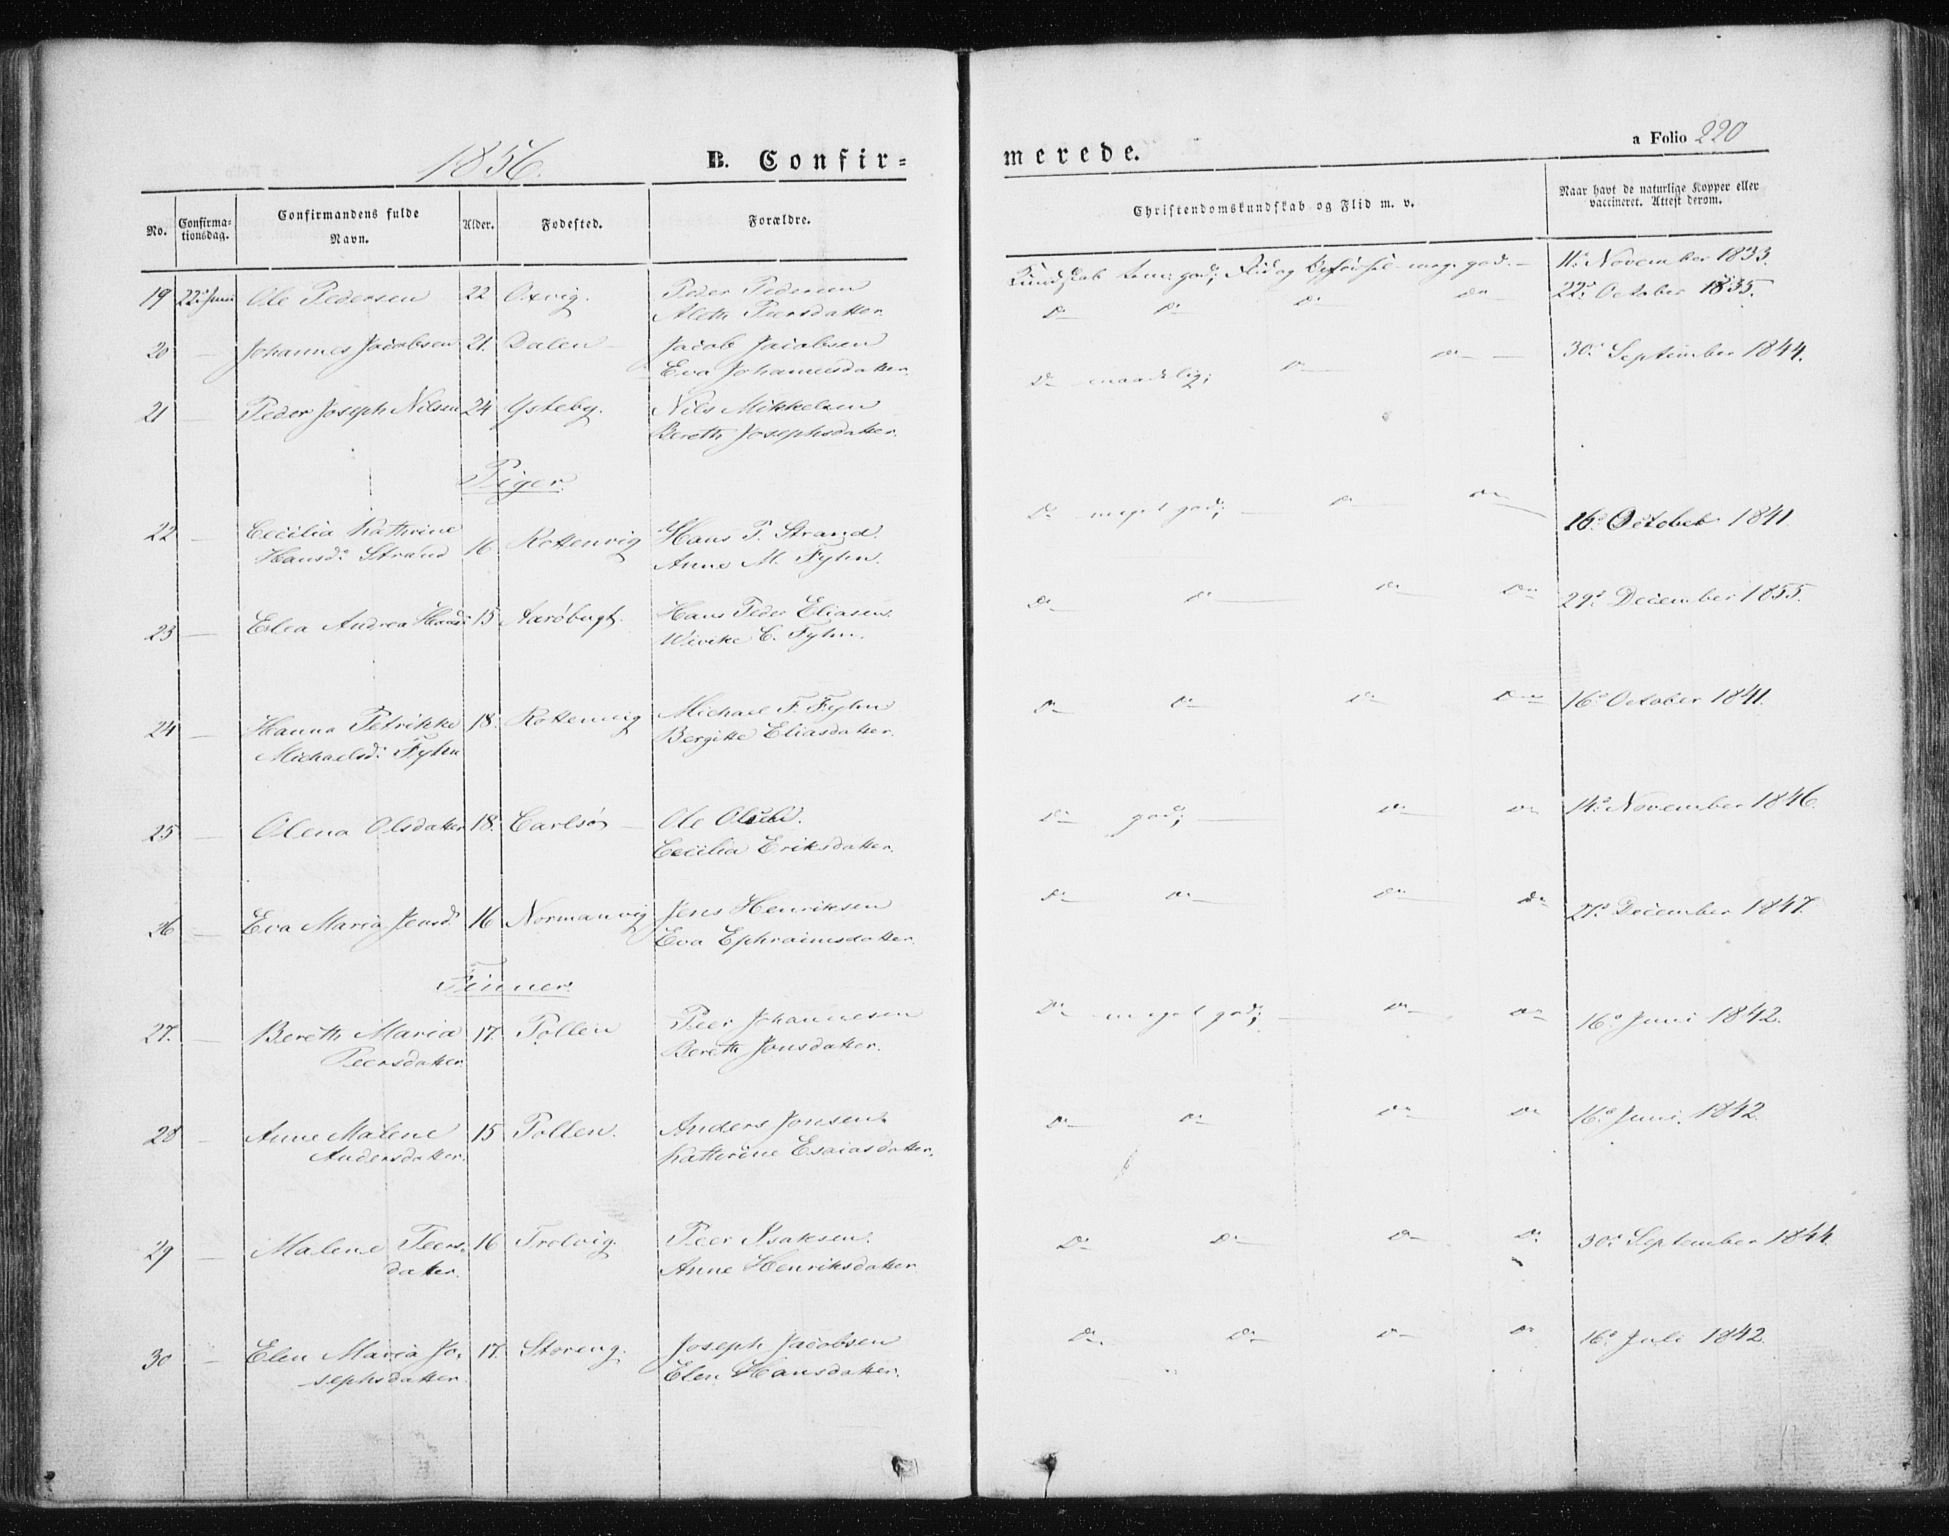 1856. B. Confir=
merede.
a Folio 220
No. Confirma-tionsdag. Confirmandens fulde Navn. Alder. Fødested. Forældre. Christendomskundskab og Flid m. v. Naar havt de naturlige Kopper eller vaccineret. Attest derom.
19 22de Juni Ole Pedersen 22 Oxvig. Peder Pedersen Kundskab tem: god; Flid og Opførsel meg: god. 11te November 1833.
Aleth Peersdatter. Do Do Do Do 22de October 1835.
20 — Johannes Jacobsen 21. Dalen — Jacob Jacobsen
Eva Johannesdatter. Do maadelig; Do Do — 30te September 1844.
21 — Peder Joseph Nilsen 24 Ysteby. Nils Mikkelsen
Bereth Josephsdatter.
Piger.
22 — Cecilia Kathrine Hans P. Strand. Do meget god; — Do Do
Hansd: Strand 16. Rottenvig Anne M. Fyhn. 16de October 1841
23 — Elea Andrea Hansd: 15 Aarøbugt. Hans Peder Eliasen. Do Do Do Do 29de December 1855.
Wivike C. Fyhn.
24 — Hanna Petrikke 18. Rottenvig Michael F. Fyhn Do Do Do Do 16de October 1841.
Michaelsd: Fyhn Bergitte Eliasdatter.
25 — Olena Olsdatter 18. Carlsø — Ole Olsen. Do god; — Do Do 14de November 1846.
Cecilia Eriksdatter.
26 — Eva Maria Jensd: 16 Normanvig Jens Henriksen Do Do Do Do 21de December 1847.
Eva Ephraimsdatter.
Finner.
27. — Bereth Maria 17. Pollen Peer Johannesen Do meget god; — Do Do 16de Juni 1842.
Peersdatter. Bereth Jonsdatter.
28 — Anne Malene 15 Pollen. Anders Jonsen. Do Do Do Do 16de Juni. 1842.
Andersdatter. Kathrine Esaiasdatter.
29 — Malene Peers- 16 Trolvig. Peer Isaksen. Do Do Do Do 30te September 1844.
datter. Anne Henriksdatter.
30 — Elen Maria Jo- 17. Storeng. Joseph Jacobsen Do Do Do Do 16de Juli 1842.
sephsdatter. Elen Hansdatter.